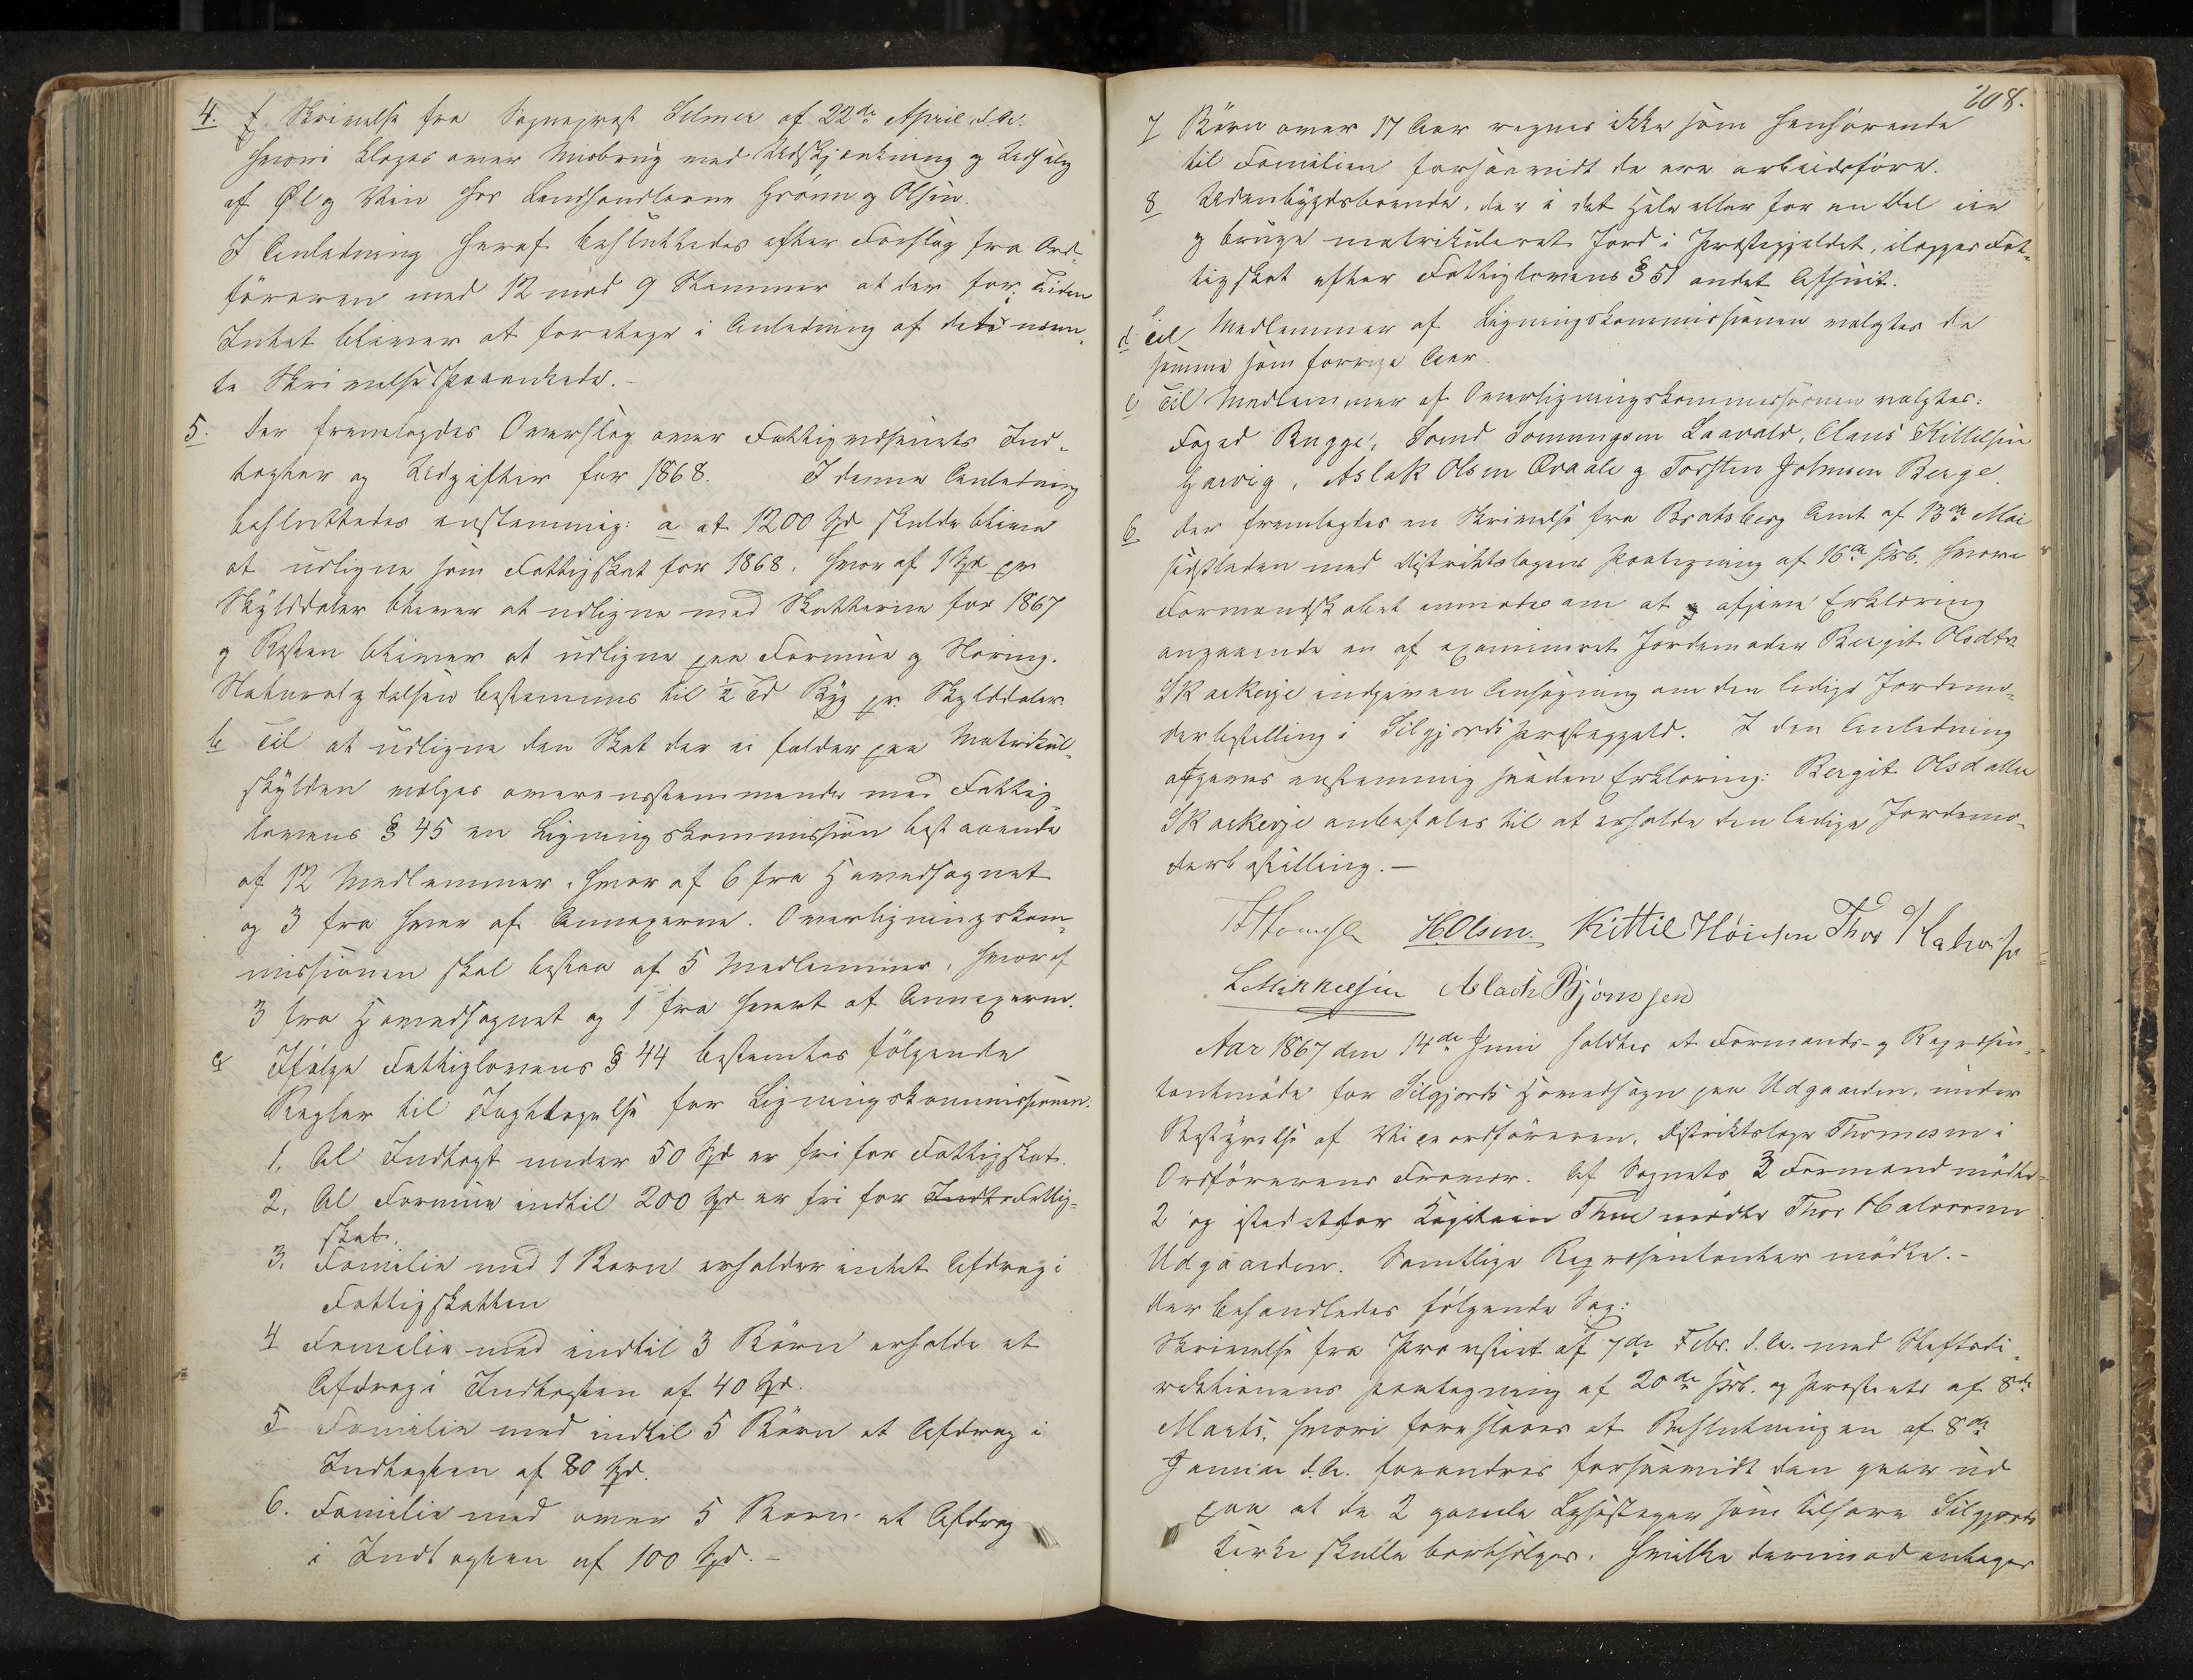 4. f Skrivelse fra Sogneprest Selmer af 22de April d.A.
hvori klages over Misbrug med Udskjænkning og Udsalg
af Øl og Vin hos Landhandlerne Grönn og Olsen.
I Anledning heraf besluttedes efter Forslag fra Ord-
föreren med 12 mod 9 Stemmer at der for Tiden
Intet bliver at foretage i Anledning af det i nevn-
te Skrivelse Paaankede.-
5. Der fremlagdes Overslag over Fattigvæsenets Ind-
tægter og Udgifter for 1868. I denne Anledning
besluttedes enstemmig: a at 1200 Spd skulde blive
at udligne som Fattigskat for 1868, hvoraf 1 Spd pr
Skylddaler bliver at udligne med Skatterne for 1867
og Resten bliver at udligne paa Formue og Næring.
Naturalydelsen bestemmes til ½ Td Byg pr. Skylddaler.
b Til at udligne den Skat der ei falder paa Matrikul-
skylden vælges overensstemmende med Fattig-
lovens § 45 en Ligningskommission bestaaende
af 12 Medlemmer, hvoraf 6 fra Hovedsognet
og 3 fra hver af Annexerne. Overligningskom-
missionen skal bestaa af 5 Medlemmer, hvoraf
3 fra Hovedsognet og 1 fra hvert af Annexerne.
c Ifølge Fattiglovens § 44 bestemtes følgende
Regler til Iagttagelse for Ligningskommissionen.
1. Al Indtægt under 50 Spd er fri for Fattigskat.
2. Al Formue indtil 200 Spd er fri for Indt Fattig-
skat.
3. Familie med 1 Barn erholder intet Afdrag i
Fattigskatten
4 Familie med indtil 3 Börn erholde et
Afdrag i Indtægten af 40 Spd.
5 Familie med indtil 5 Börn et Afdrag i
Indtægten af 80 Spd.
6. Familie med over 5 Børn et Afdrag
i Indtægten af 100 Spd.-
208.
7 Börn over 17 Aar regnes ikke som henhörende
til Familien forsaavidt de ere arbeidsföre.
8 Udenbygdsboende, der i det Hele eller for en Del eie
og bruge matrikuleret Jord i Præstegjeldet, ilægges Fat-
tigskat efter Fattiglovens § 51 andet Afsnit.
d Til Medlemmer af Ligningskommissionen valgtes de
samme som forrige Aar.
e Til Medlemmer af Overligningskommissionen valgtes:
Foged Bugge, Sveind Somungsen Laavald, Claus Kittilsen
Garvig, Aslak Olsen Qvaale og Torsten Johnsen Berge.
6. Der fremlagdes en Skrivelse fra Bratsberg Amt af 13de Mai
sidstleden med Distriktslægens Paategning af 16de s.M. hvori
Formandskabet anmodes om at og afgive Erklæring
angaaende en af examineret Jordemoder Bergit Olsdtr
Skaekerje indgiven Ansøgning om den ledige Jordemo-
derbestilling i Silgjords Præstegjeld. I den Anledning
afgaves enstemmig saaden Erklæring: Bergit Olsdatter
Skaekerje anbefales til at erholde den ledige Jordemo-
derbestilling.-
H Olsen. Kittil Höidsen Thor
L Mikkelsen Aslach Björnsen
Aar 1867 den 14de Juni holdtes et Formands- og Repræsen-
tantmöde for Silgjords Hovedsogn paa Udgaarden, under
Bestyrelse af Viceordföreren, Distriktslæge Thomesen i
Ordförerens Fravær. Af Sognets 3 Formænd mødte
2 og istedetfor Kapitain Thue mødte Thor Halvorsen
Udgaarden. Samtlige Repræsentanter mødte.-
Der behandledes følgende Sag:
Skrivelse fra Provstiet af 7de Febr. d.A. med Stiftsdi-
rektionens Paategning af 20de s.M. og Provstiets af 8de
Marts, hvori foreslaaes at Beslutningen af 8de
Januar d.A. forandres forsaavidt den gaar ud
paa at de 2 gamle Lysestager som tilhøre Silgjords
Kirke skulle bortsælges, hvilke derimod antages